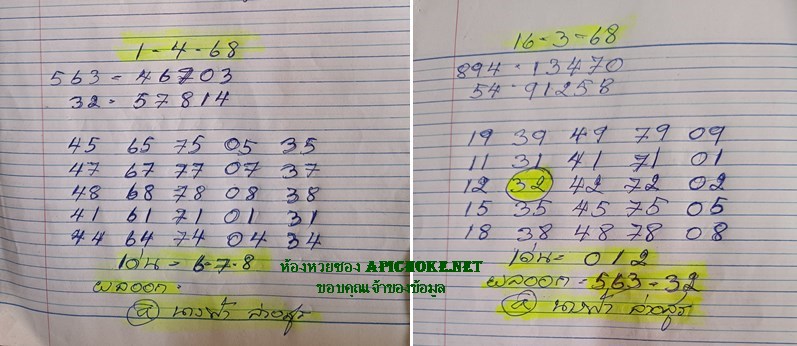 1-4-68
563 = 46703
32 = 57814
45 65 75 05 35
47 67 77 07 37
48 68 78 08 38
41 61 71 01 31
44 64 74 04 34
เด่น = 6-7-8
ผลออก =
นางฟ้า
16-3-68
894 = 13470
54 = 91258
19 39 49 79 09
11 31 41 71 01
12 32 42 72 02
15 35 45 75 05
18 38 48 78 08
เด่น = 012
ผลออก = 563-32
นางฟ้า
ห้องหวยซอง APICHOKE.NET
ขอบคุณเจ้าของข้อมูล